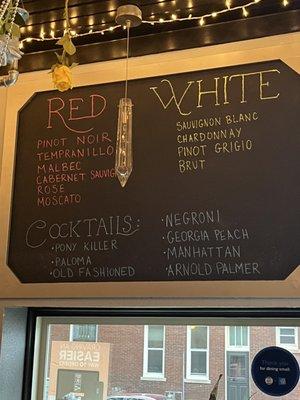 RED
PINOT NOIR
TEMPRANILLO
MALBEC
CABERNET SAUVIG
ROSE
MOSCATO
WHITE
SAUVIGNON BLANC
CHARDONNAY
PINOT GRIGIO
BRUT
COCKTAILS:
• PONY KILLER
• PALOMA
• OLD FASHIONED
• NEGRONI
• GEORGIA PEACH
• MANHATTAN
• ARNOLD PALMER
EASIER
Thank you
for dining small.